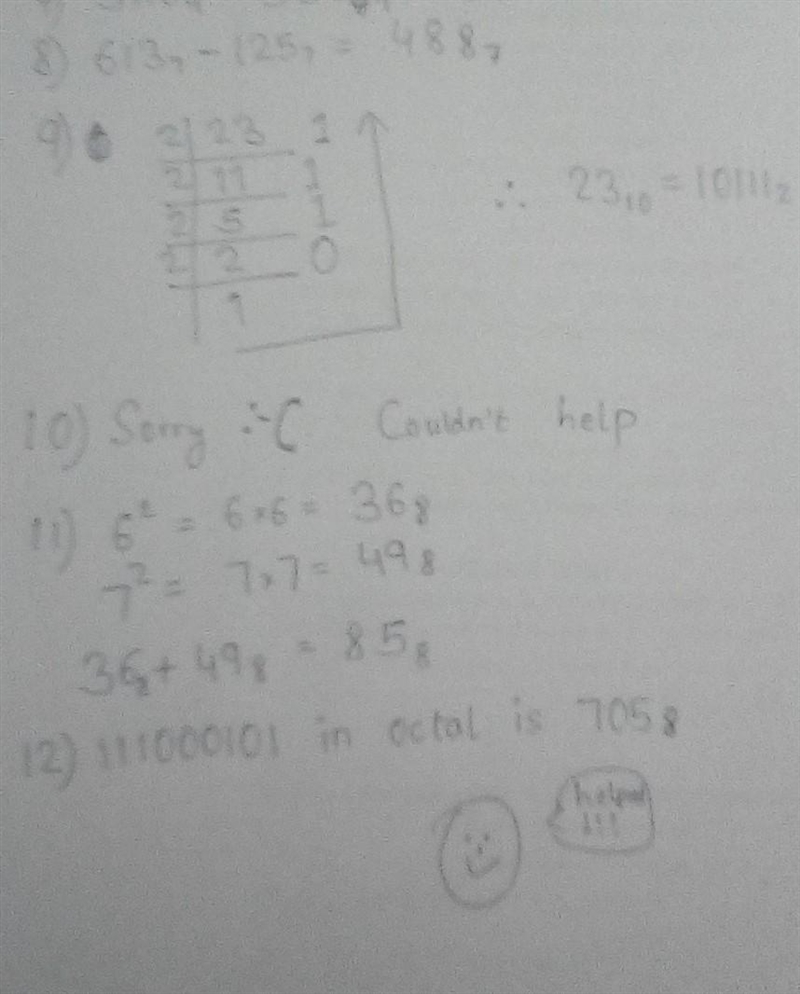 8) 613₇ - 125₇ = 488₇
9) 2 23 1
2 11 1
2 5 1
2 2 0
1
∴ 23₁₀ = 10111₂
10) Sorry :-( Couldn't help
11) 6² = 6×6 = 36₈
7² = 7×7 = 49₈
36₈ + 49₈ = 85₈
12) 111000101 in octal is 705₈
!!!